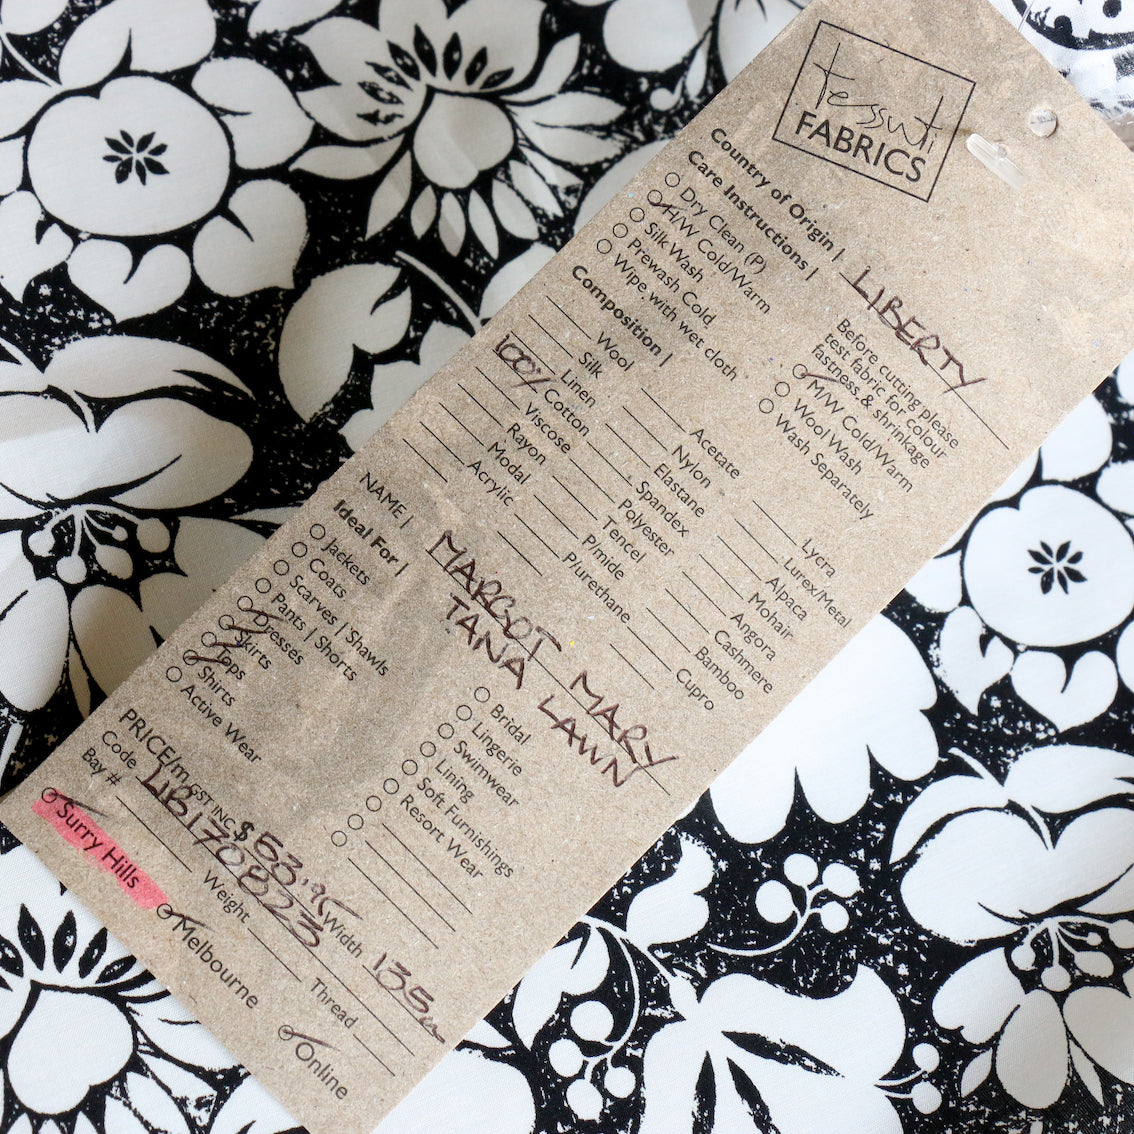 tessuti
FABRICS
Country of Origin | LIBERTY
Care Instructions |
Dry Clean (P)
H/W Cold/Warm
Silk Wash
Prewash Cold
Wipe with wet cloth
Before cutting please
test fabric for colour
fastness & shrinkage
M/W Cold/Warm
Wool Wash
Wash Separately
Composition |
Wool
Silk
Linen
100% Cotton
Viscose
Rayon
Modal
Acrylic
Acetate
Nylon
Elastane
Spandex
Polyester
Tencel
P/mide
P/urethane
Lycra
Lurex/Metal
Alpaca
Mohair
Angora
Cashmere
Bamboo
Cupro
NAME | MARGOT MARY
TANA LAWN
Ideal For |
Jackets
Coats
Scarves | Shawls
Pants | Shorts
Dresses
Skirts
Tops
Shirts
Active Wear
Bridal
Lingerie
Swimwear
Lining
Soft Furnishings
Resort Wear
PRICE/m GST INC $53.95 Width 135cm
Code LIB170823
Bay # Weight Thread
Surry Hills Melbourne Online